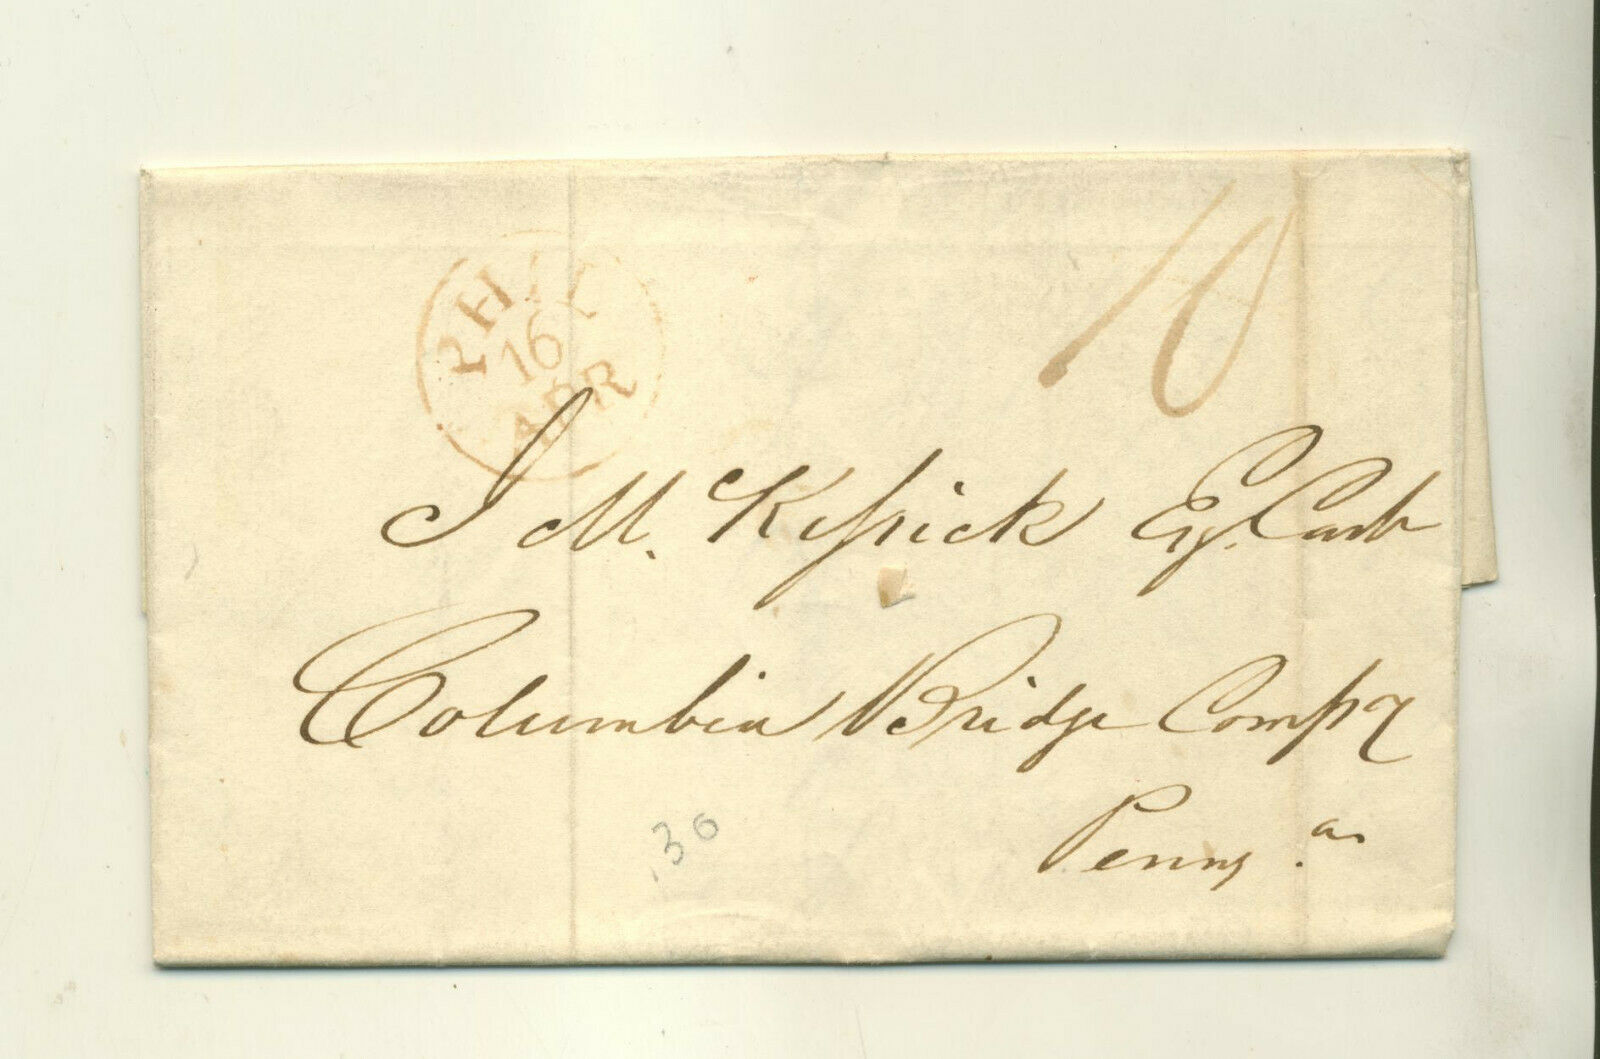 PHIL
16
APR
10
J M. McKissick Esq. Cash
Columbia Bridge Compy
Penns.a
30